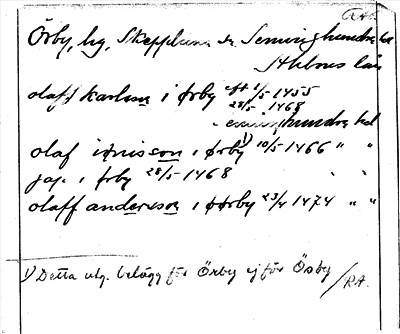 RA.
Örby, hg, Skepptuna sn Seminghundra hd
Sthlms län
olaff karlsson i ørby eft 1/5-1455
28/5-1468
Seminghundra hd
olaf iønisson i ørby 1) 10/5-1466 " "
jap. i ørby 28/5-1468 " "
olaff andersson i ørby 23/4 1474 " "
1) Detta utg. belägg för Örby ej för Ösby /RA.